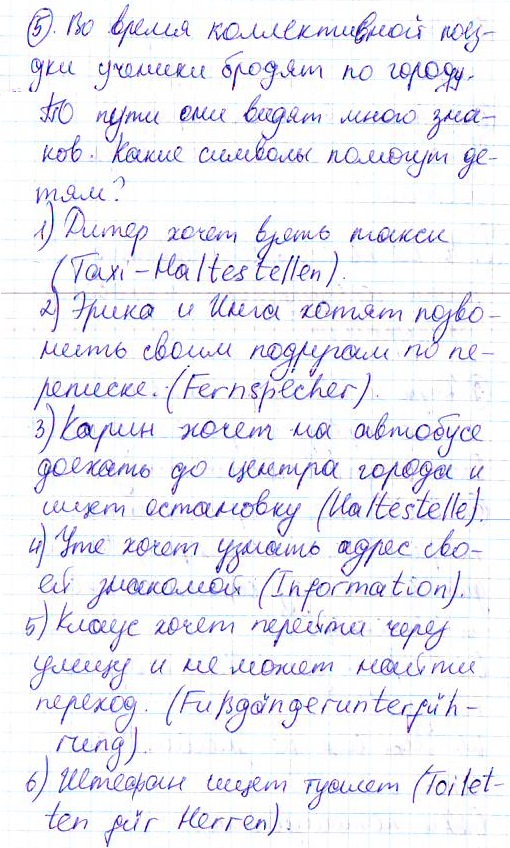 ⑤. Во время коллективной поез-
дки ученики бродят по городу.
По пути они видят много зна-
ков. Какие символы помогут де-
тям?
1) Дитер хочет взять такси
(Taxi-Haltestellen).
2) Эрика и Инга хотят позво-
нить своим подругам по пе-
реписке. (Fernspecher).
3) Карин хочет на автобусе
доехать до центра города и
ищет остановку (Haltestelle).
4) Уте хочет узнать адрес сво-
ей знакомой (Information).
5) Клаус хочет перейти через
улицу и не может найти
переход. (Fußgängerunterfüh-
rung).
6) Штефан ищет туалет (Toilet-
ten für Herren).